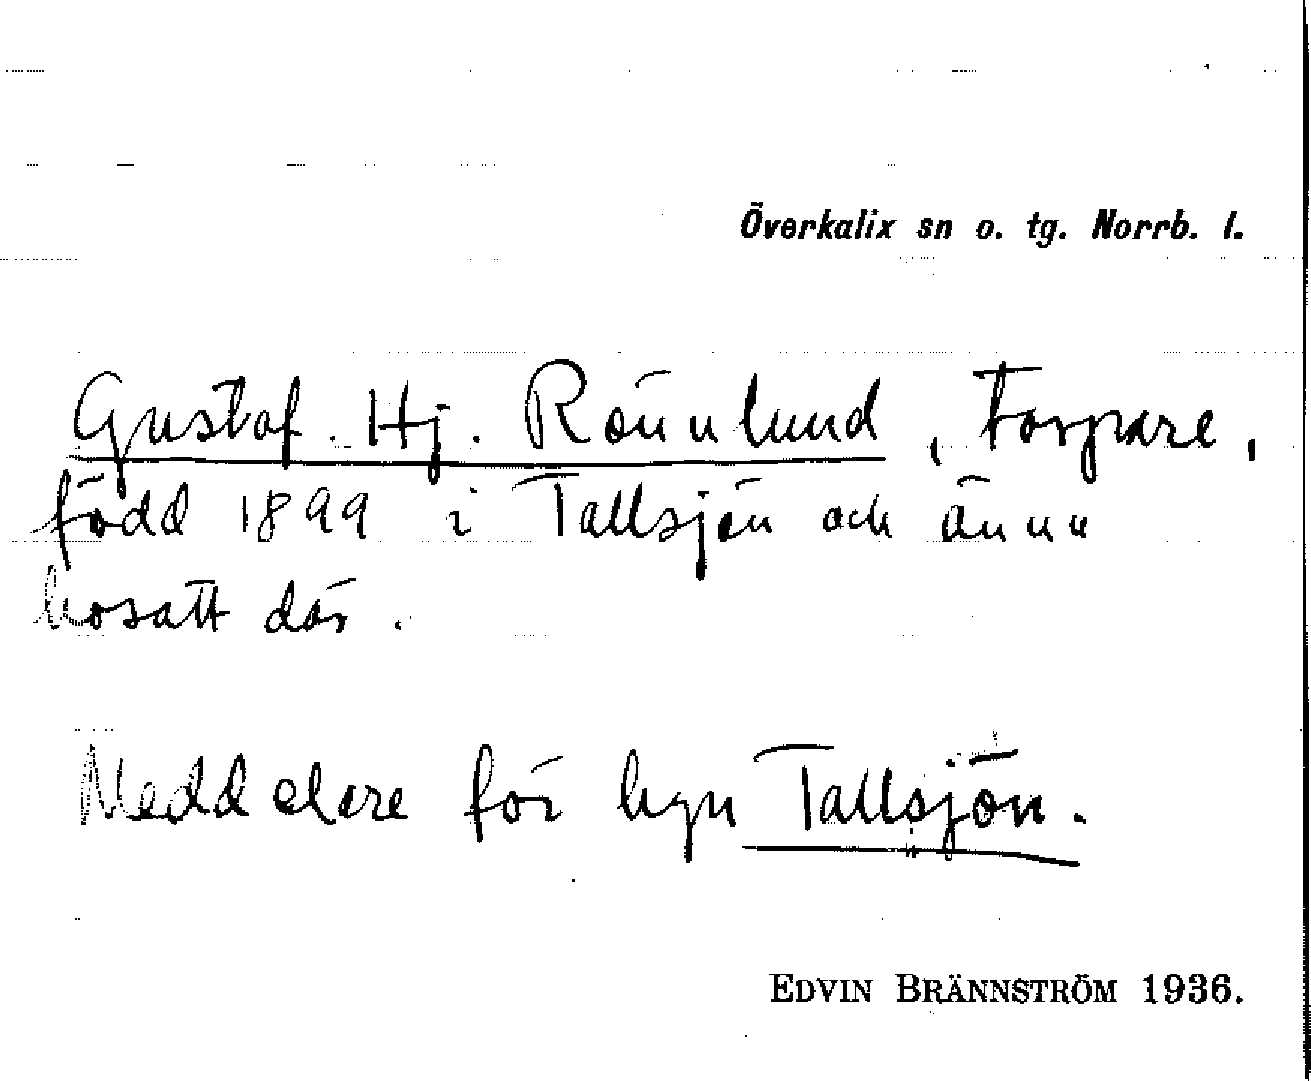 Överkalix sn o. tg. Norrb. l.
Gustaf Hj. Rönnlund, torpare,
född 1899 i Tallsjön och ännu
bosatt där.
Meddelare för byn Tallsjön.
EDVIN BRÄNNSTRÖM 1936.